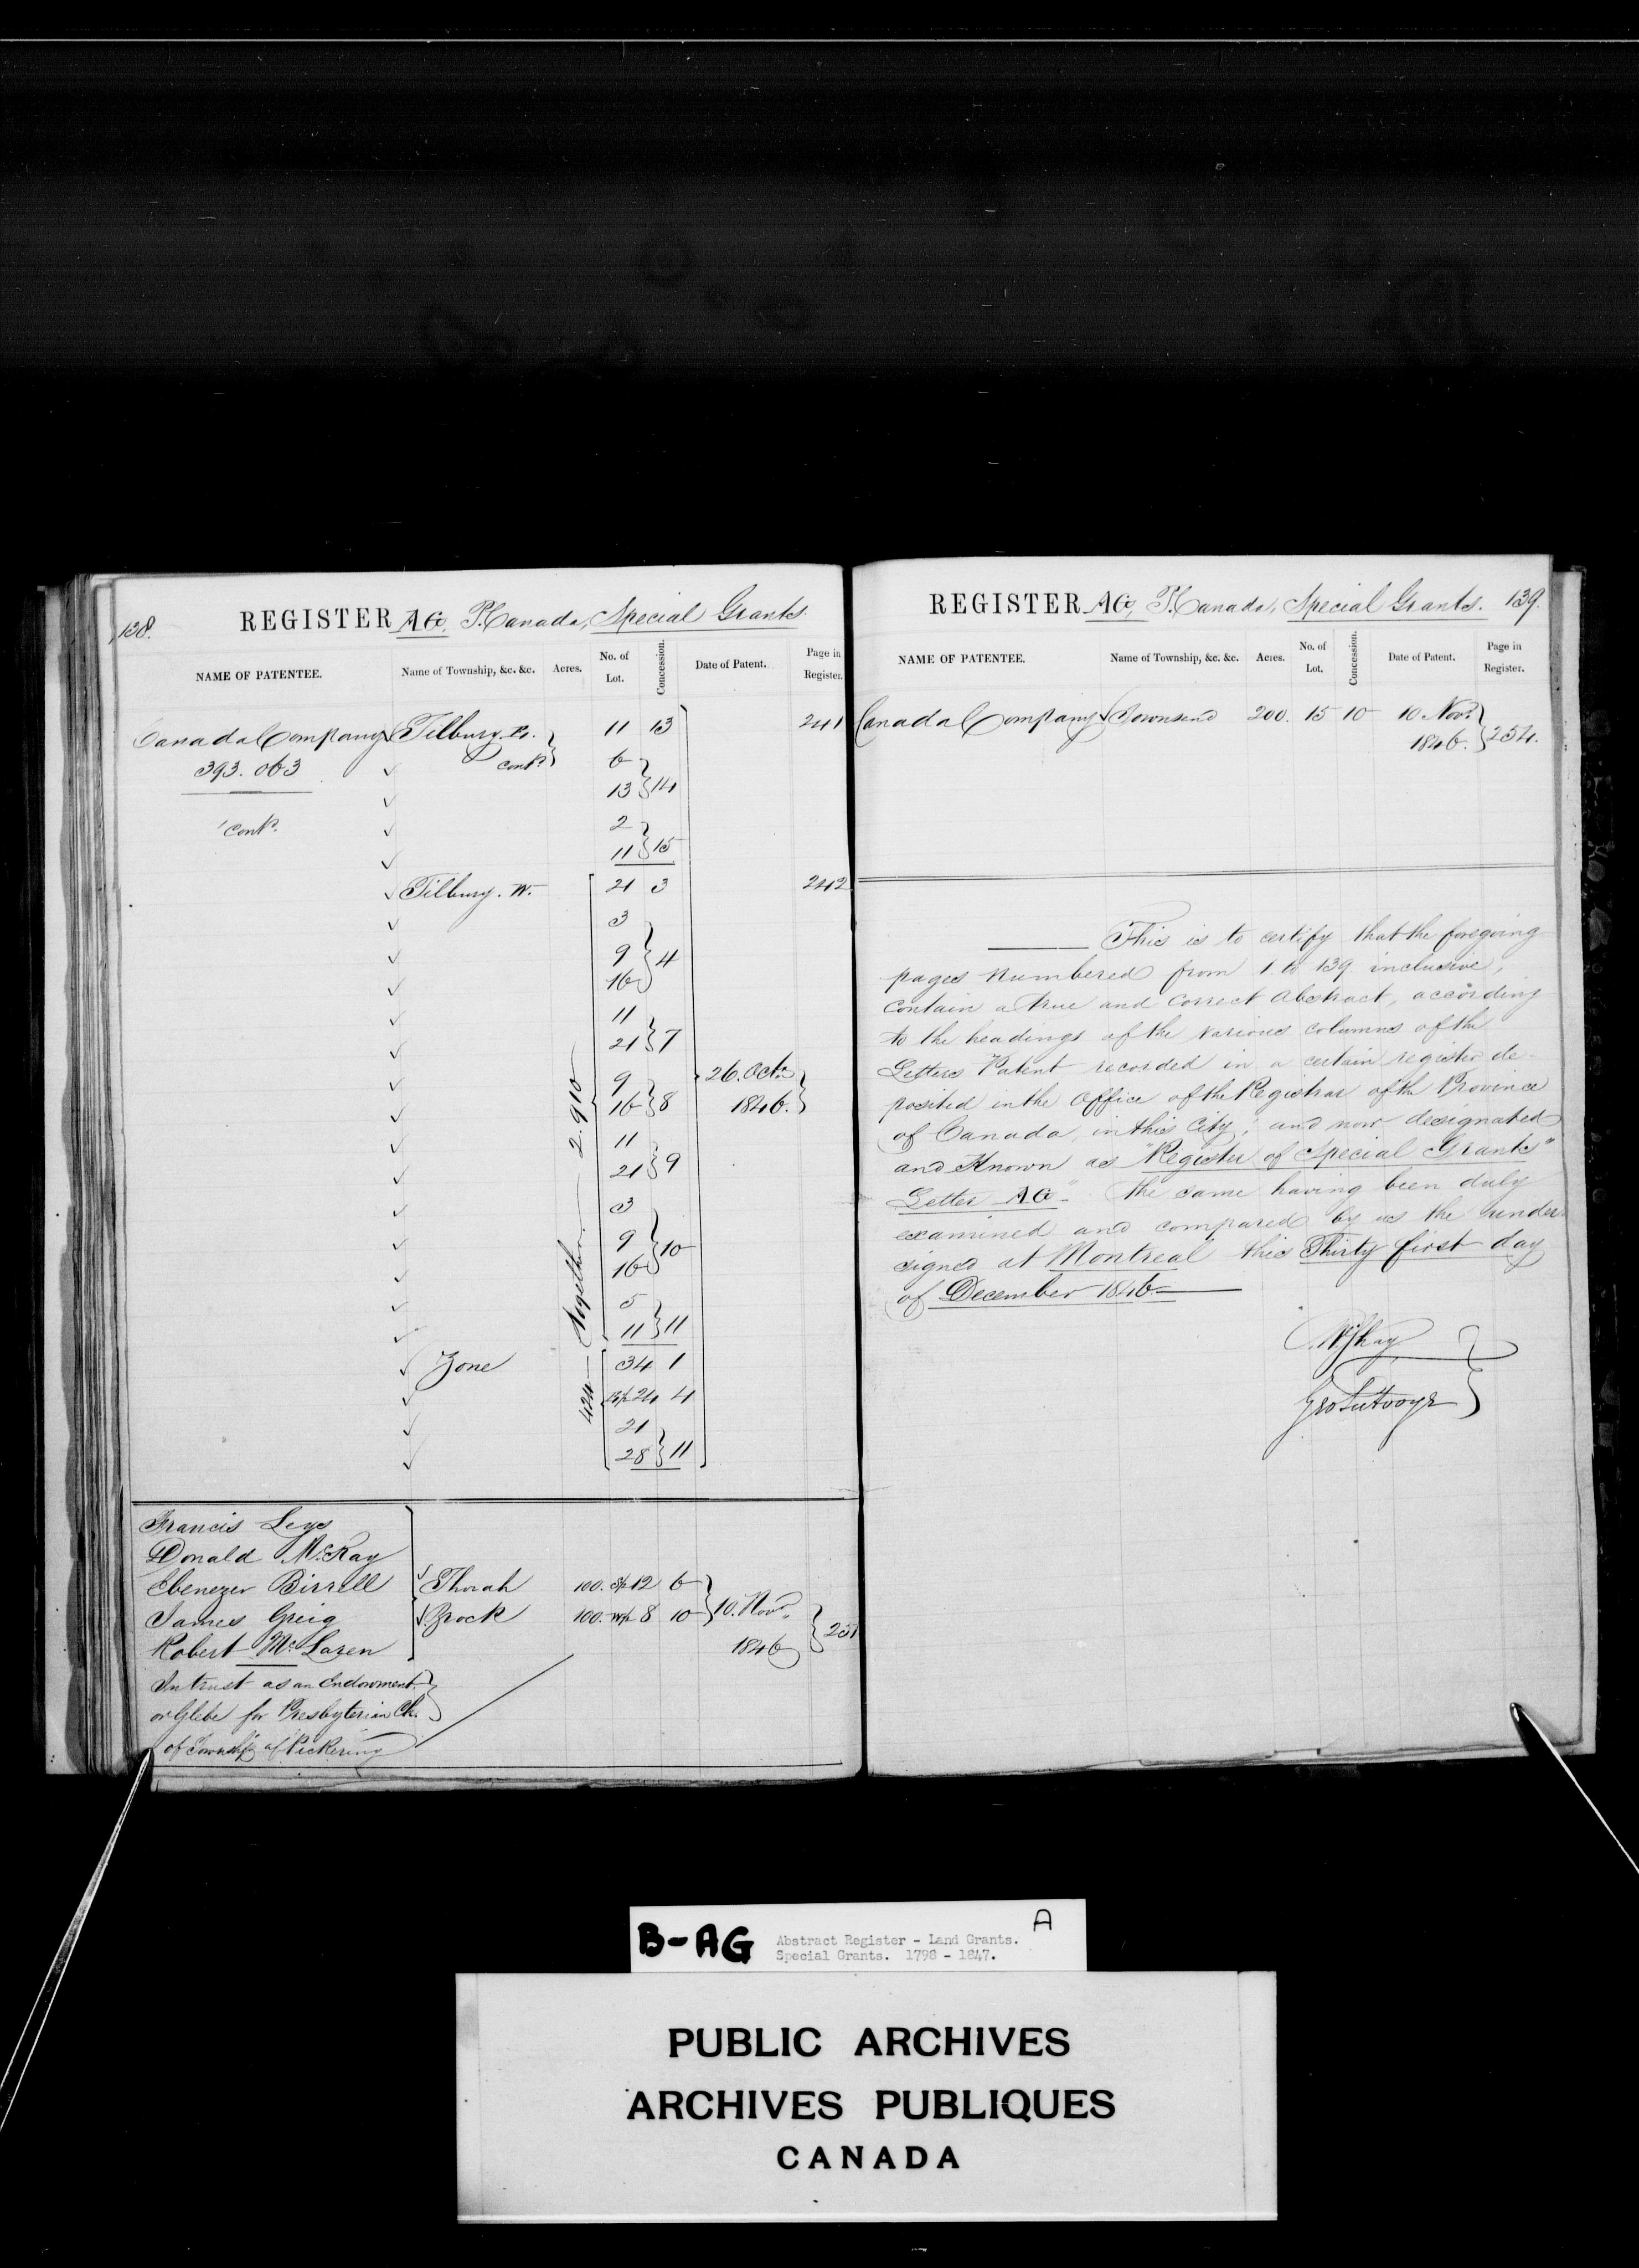 138.
REGISTER AG, P. Canada, Special Grants.
NAME OF PATENTEE. Name of Township, &c. &c. Acres. No. of Lot. Concession. Date of Patent. Page in Register.
Canada Company Tilbury. E. 11 13 241
393. 063 Cont? 6
13 } 14
Cont? 2
11 } 15
Tilbury. W. 21 3 242
3
9 } 4
16
11
21 } 7
9 26. Octr
16 } 8 1846.
2.910
11
21 } 9
3
9 } 10
16
Together
5
11 } 11
Zone 34 1
424
24 4
21
28 } 11
Francis Leys
Donald McKay
Ebenezer Birrell Thorah 100. S½ 12 6
James Greig Brock 100. W½ 8 10 10. Novr
Robert McLaren 1846 251
In trust as an Endowment
or Glebe for Presbyterian Ch.
of Township of Pickering
REGISTER AG, P. Canada, Special Grants. 139.
NAME OF PATENTEE. Name of Township, &c. &c. Acres. No. of Lot. Concession. Date of Patent. Page in Register.
Canada Company Townsend 200. 15 10 10 Novr
1846. 254.
This is to certify that the foregoing
pages numbered from 1 to 139 inclusive,
contain a true and correct Abstract, according
to the headings of the various columns of the
Letters Patent recorded in a certain register de-
posited in the Office of the Registrar of the Province
of Canada, in this City; and now designated
and Known as "Register of Special Grants"
Letter AG" the same having been duly
examined and compared by us the under
signed at Montreal this Thirty first day
of December 1846
B-AG
A
Abstract Register - Land Grants.
Special Grants. 1798 - 1847.
PUBLIC ARCHIVES
ARCHIVES PUBLIQUES
CANADA